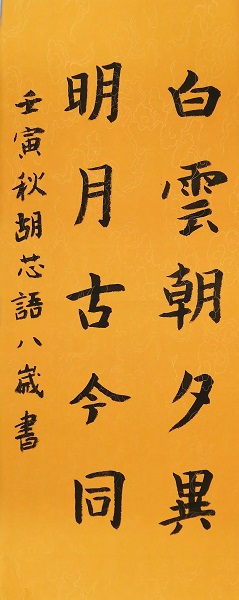 白雲朝夕異
明月古今同
壬寅秋胡芯語八歲書